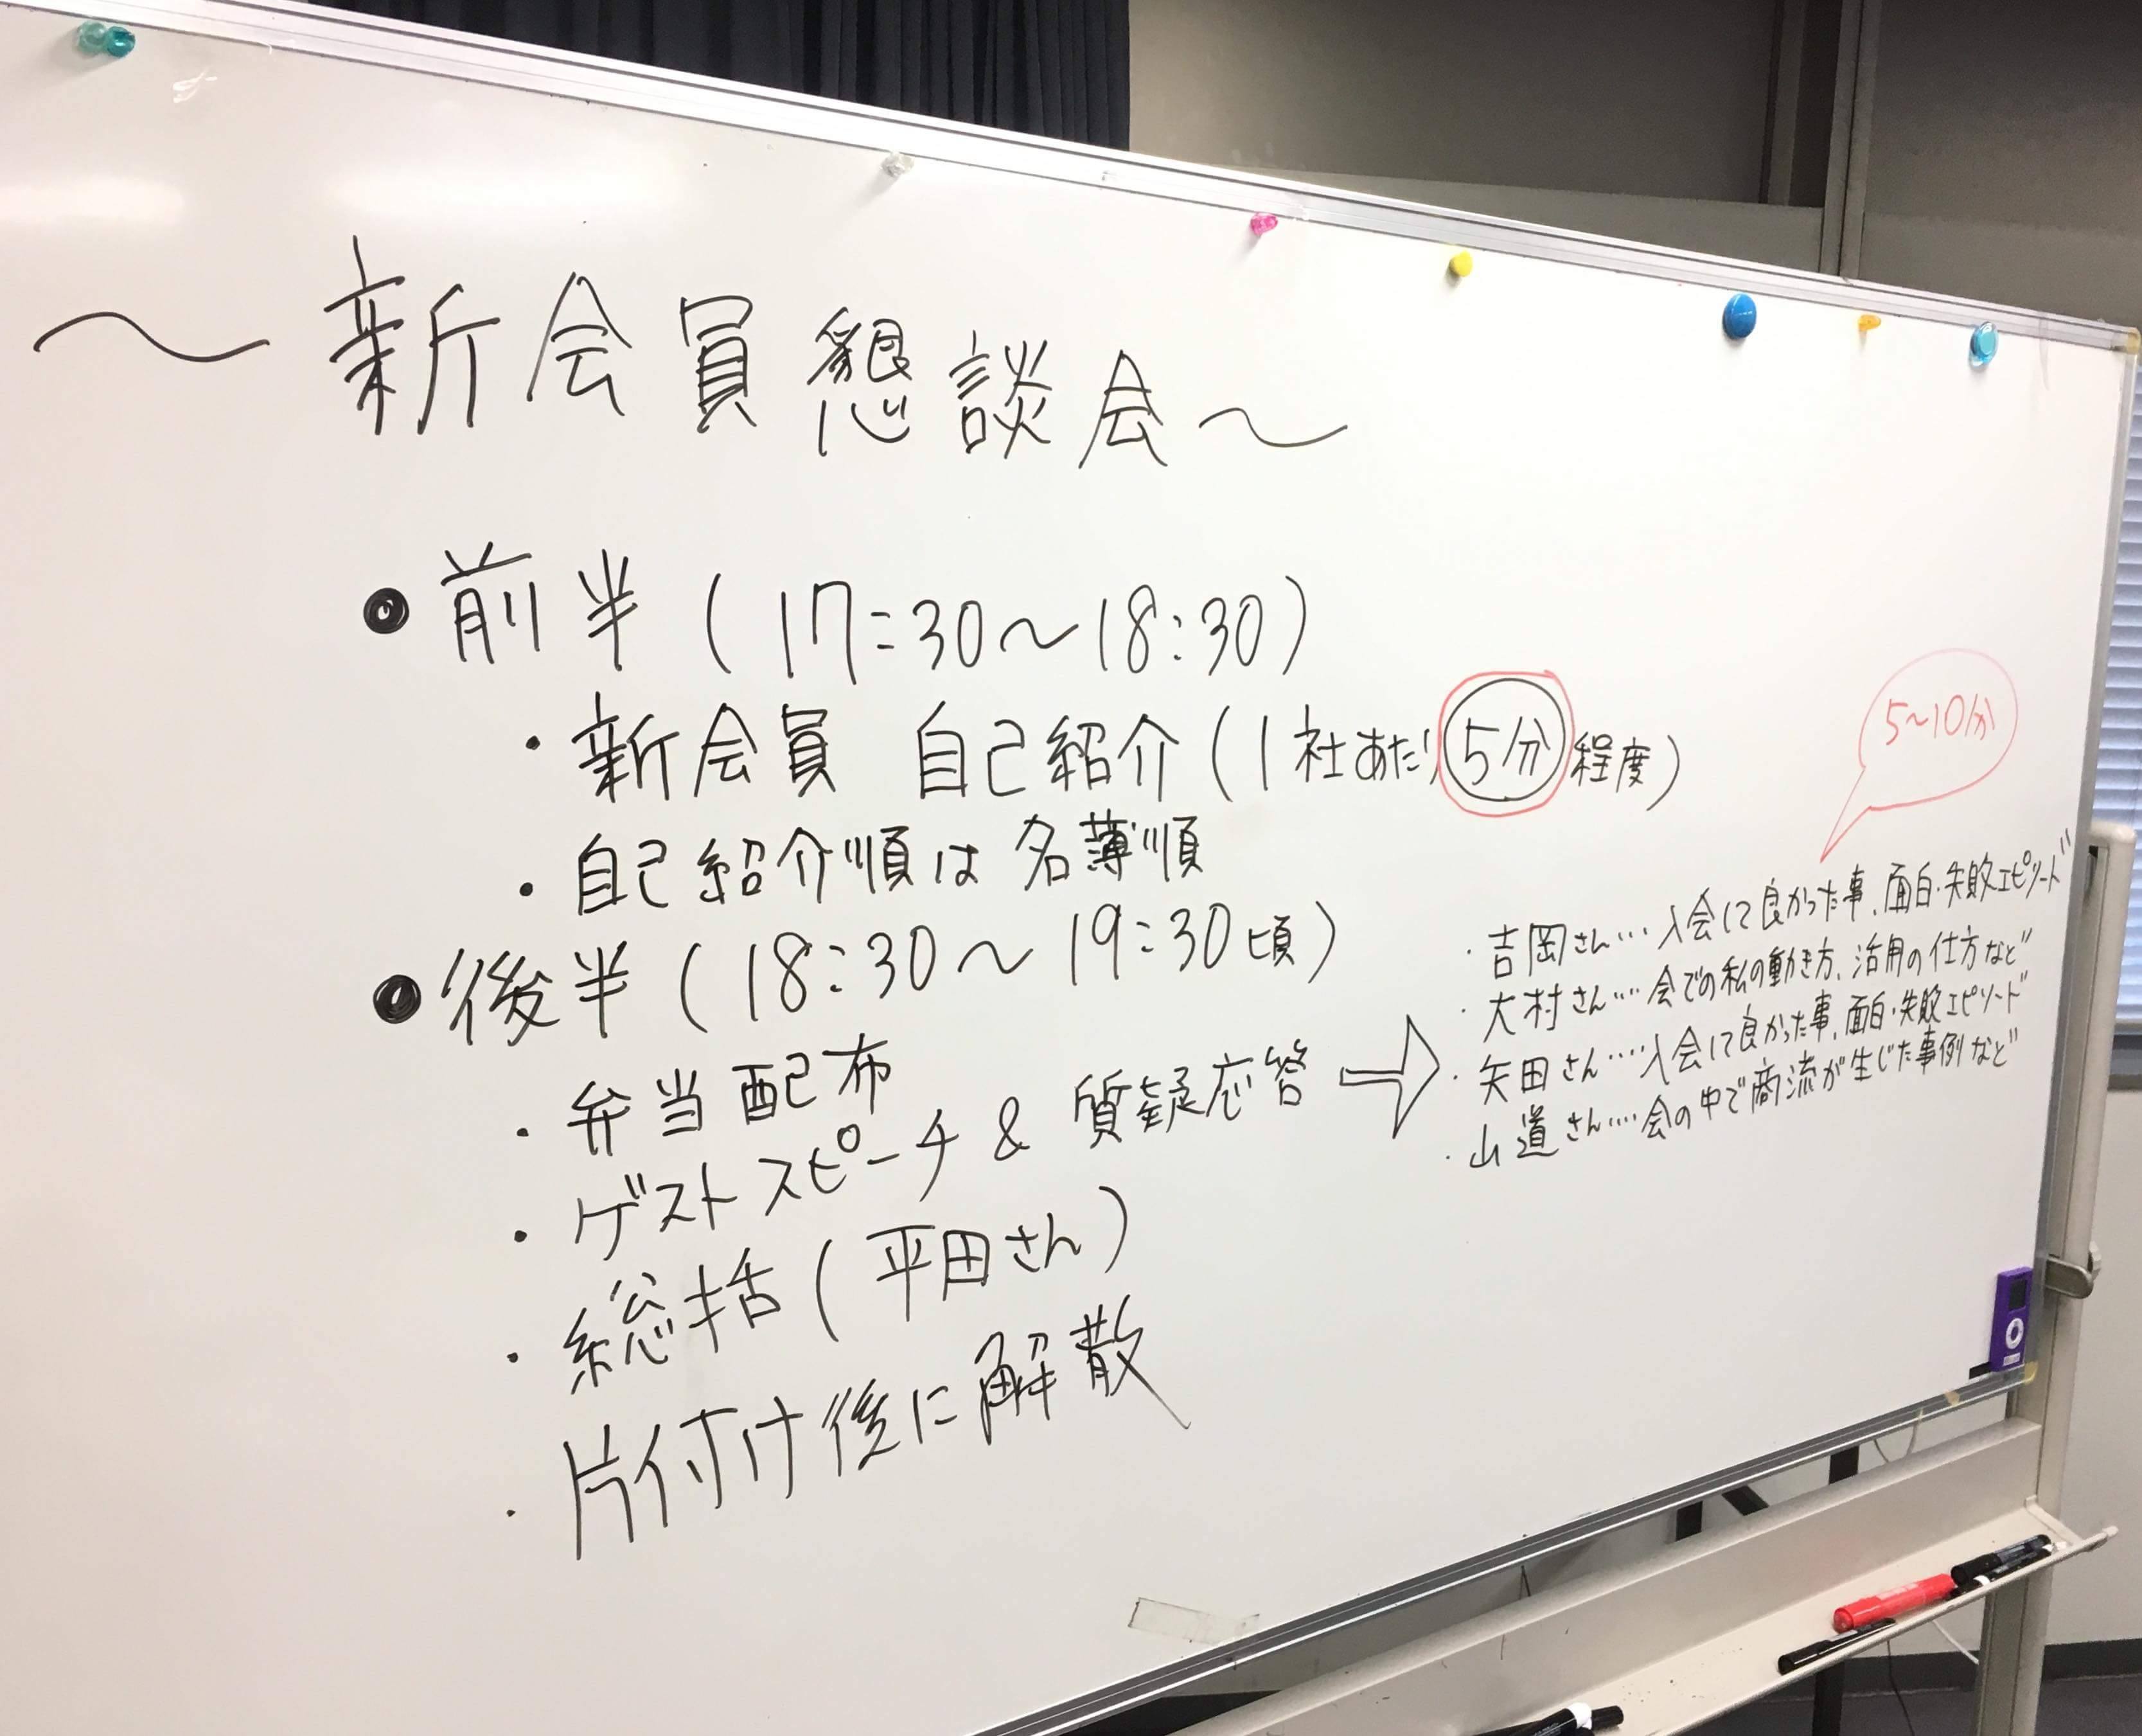 〜新会員懇談会〜
●前半(17:30〜18:30)
・新会員 自己紹介(1社あたり5分程度)
・自己紹介順は名薄順
●後半(18:30〜19:30頃)
・弁当配布
・ゲストスピーチ&質疑応答⇨
・総括(平田さん)
・片付け後に解散
5〜10分
・吉岡さん…入会して良かった事、面白・失敗エピソード
・大村さん…会での私の動き方、活用の仕方など
・矢田さん…入会して良かった事、面白・失敗エピソード
・山道さん…会の中で商流が生じた事例など